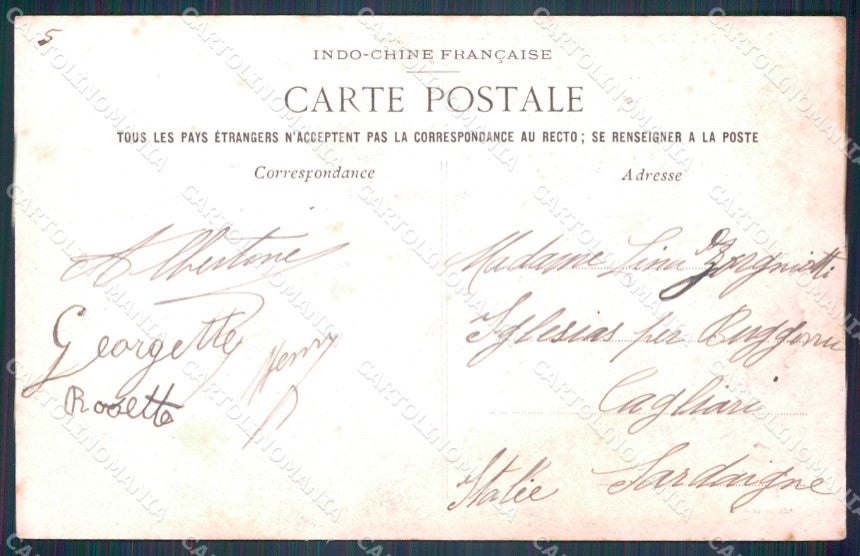 5
INDO-CHINE FRANÇAISE
CARTE POSTALE
TOUS LES PAYS ÉTRANGERS N'ACCEPTENT PAS LA CORRESPONDANCE AU RECTO; SE RENSEIGNER A LA POSTE
Correspondance
Albertine
Georgette
Henry
Rosette
Adresse
Madame Lina
Iglesias per
Cagliari
Italie Sardaigne
CARTOLINOMANIA